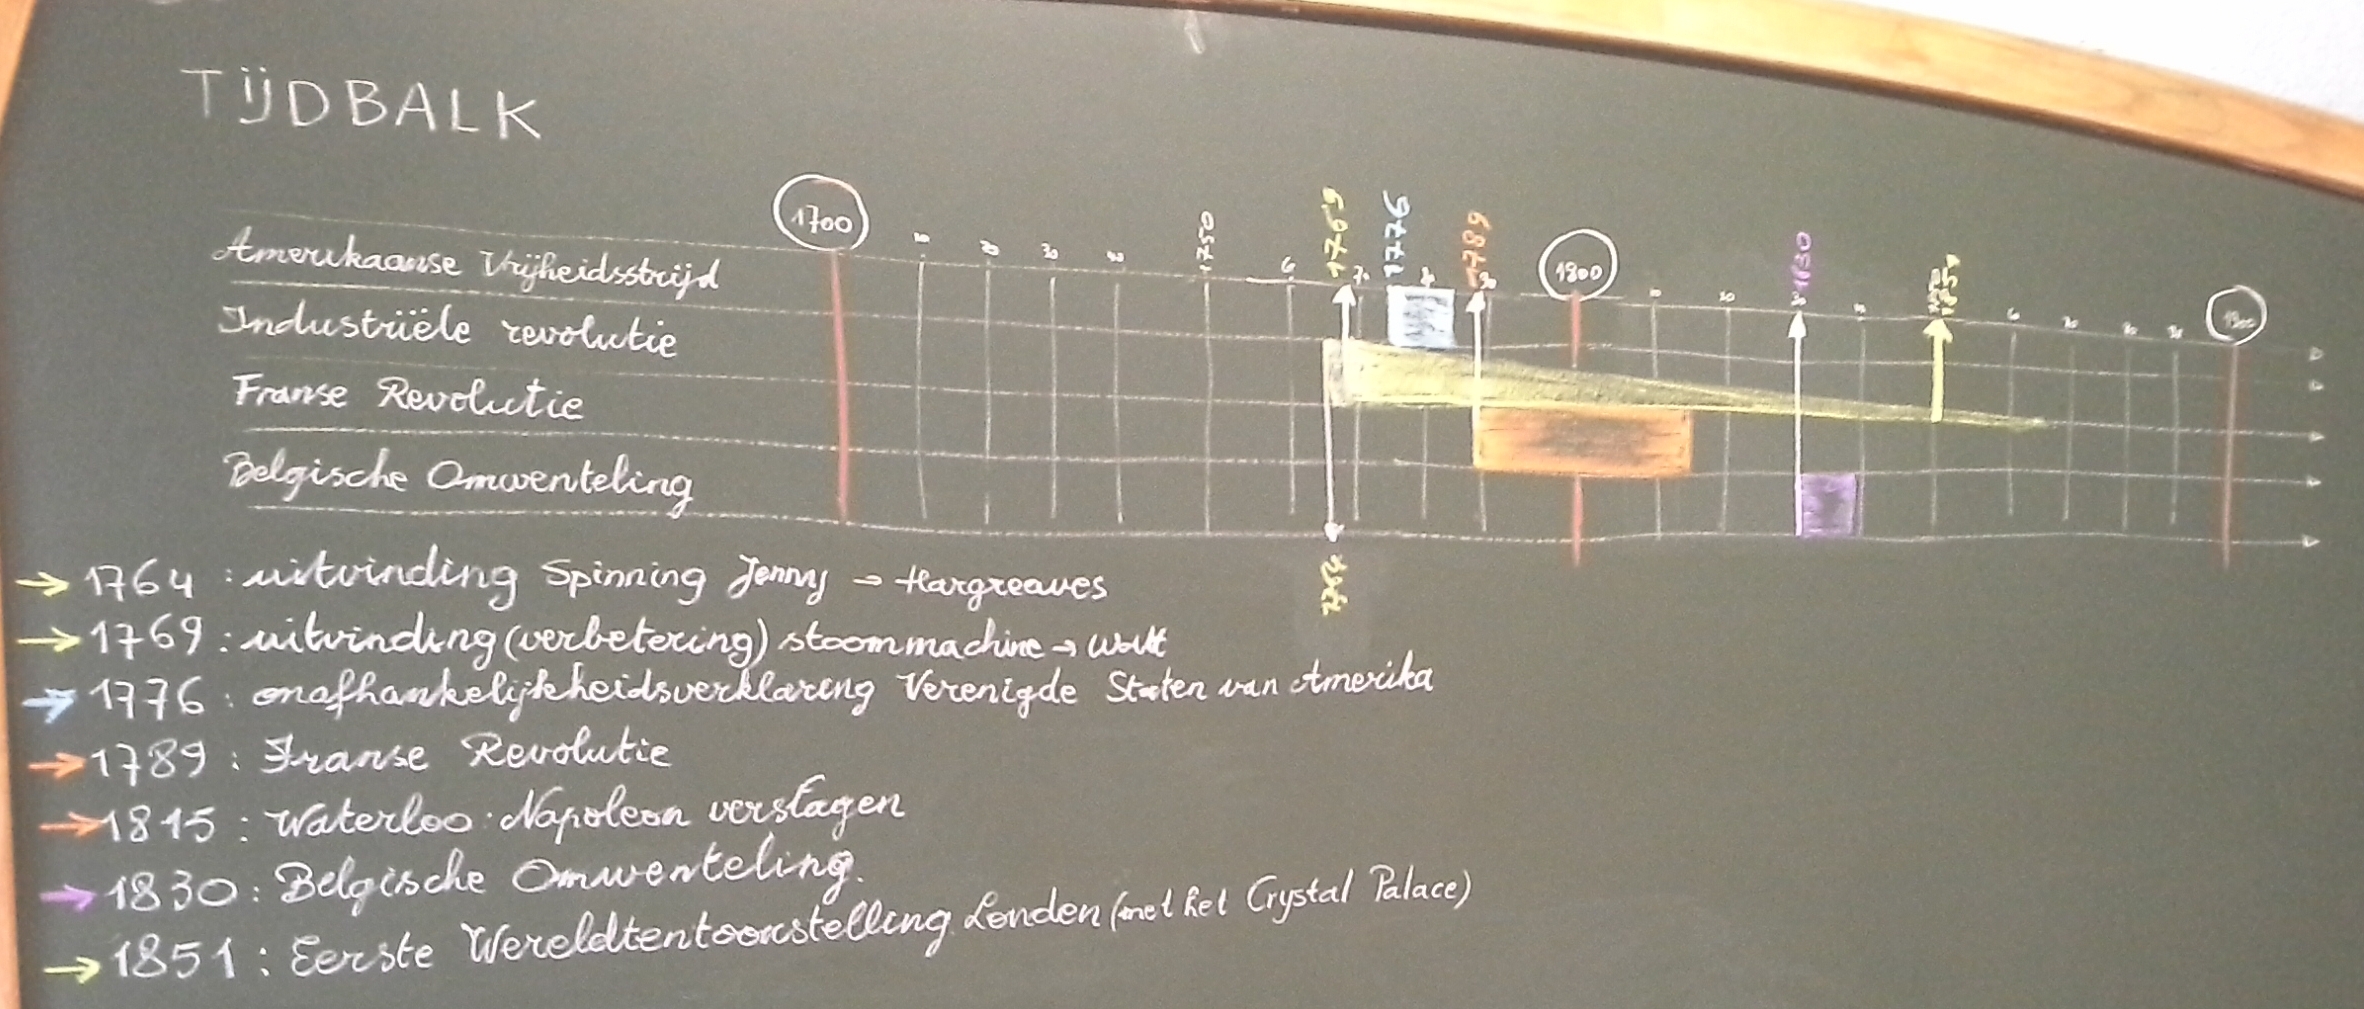 TIJDBALK
1700 10 20 30 40 1750 6 1769 70 1776 8 1789 90 1800 10 20 1830 30 1851 6 70 80 90 1900
Amerikaanse Vrijheidsstrijd
Industriële revolutie
Franse Revolutie
Belgische Omwenteling
1764
1764 : uitvinding Spinning Jenny → Hargreaves
1769 : uitvinding (verbetering) stoommachine → Watt
1776 : onafhankelijkheidsverklaring Verenigde Staten van Amerika
1789 : Franse Revolutie
1815 : Waterloo : Napoleon verslagen
1830 : Belgische Omwenteling.
1851 : Eerste Wereldtentoonstelling Londen (met het Crystal Palace)